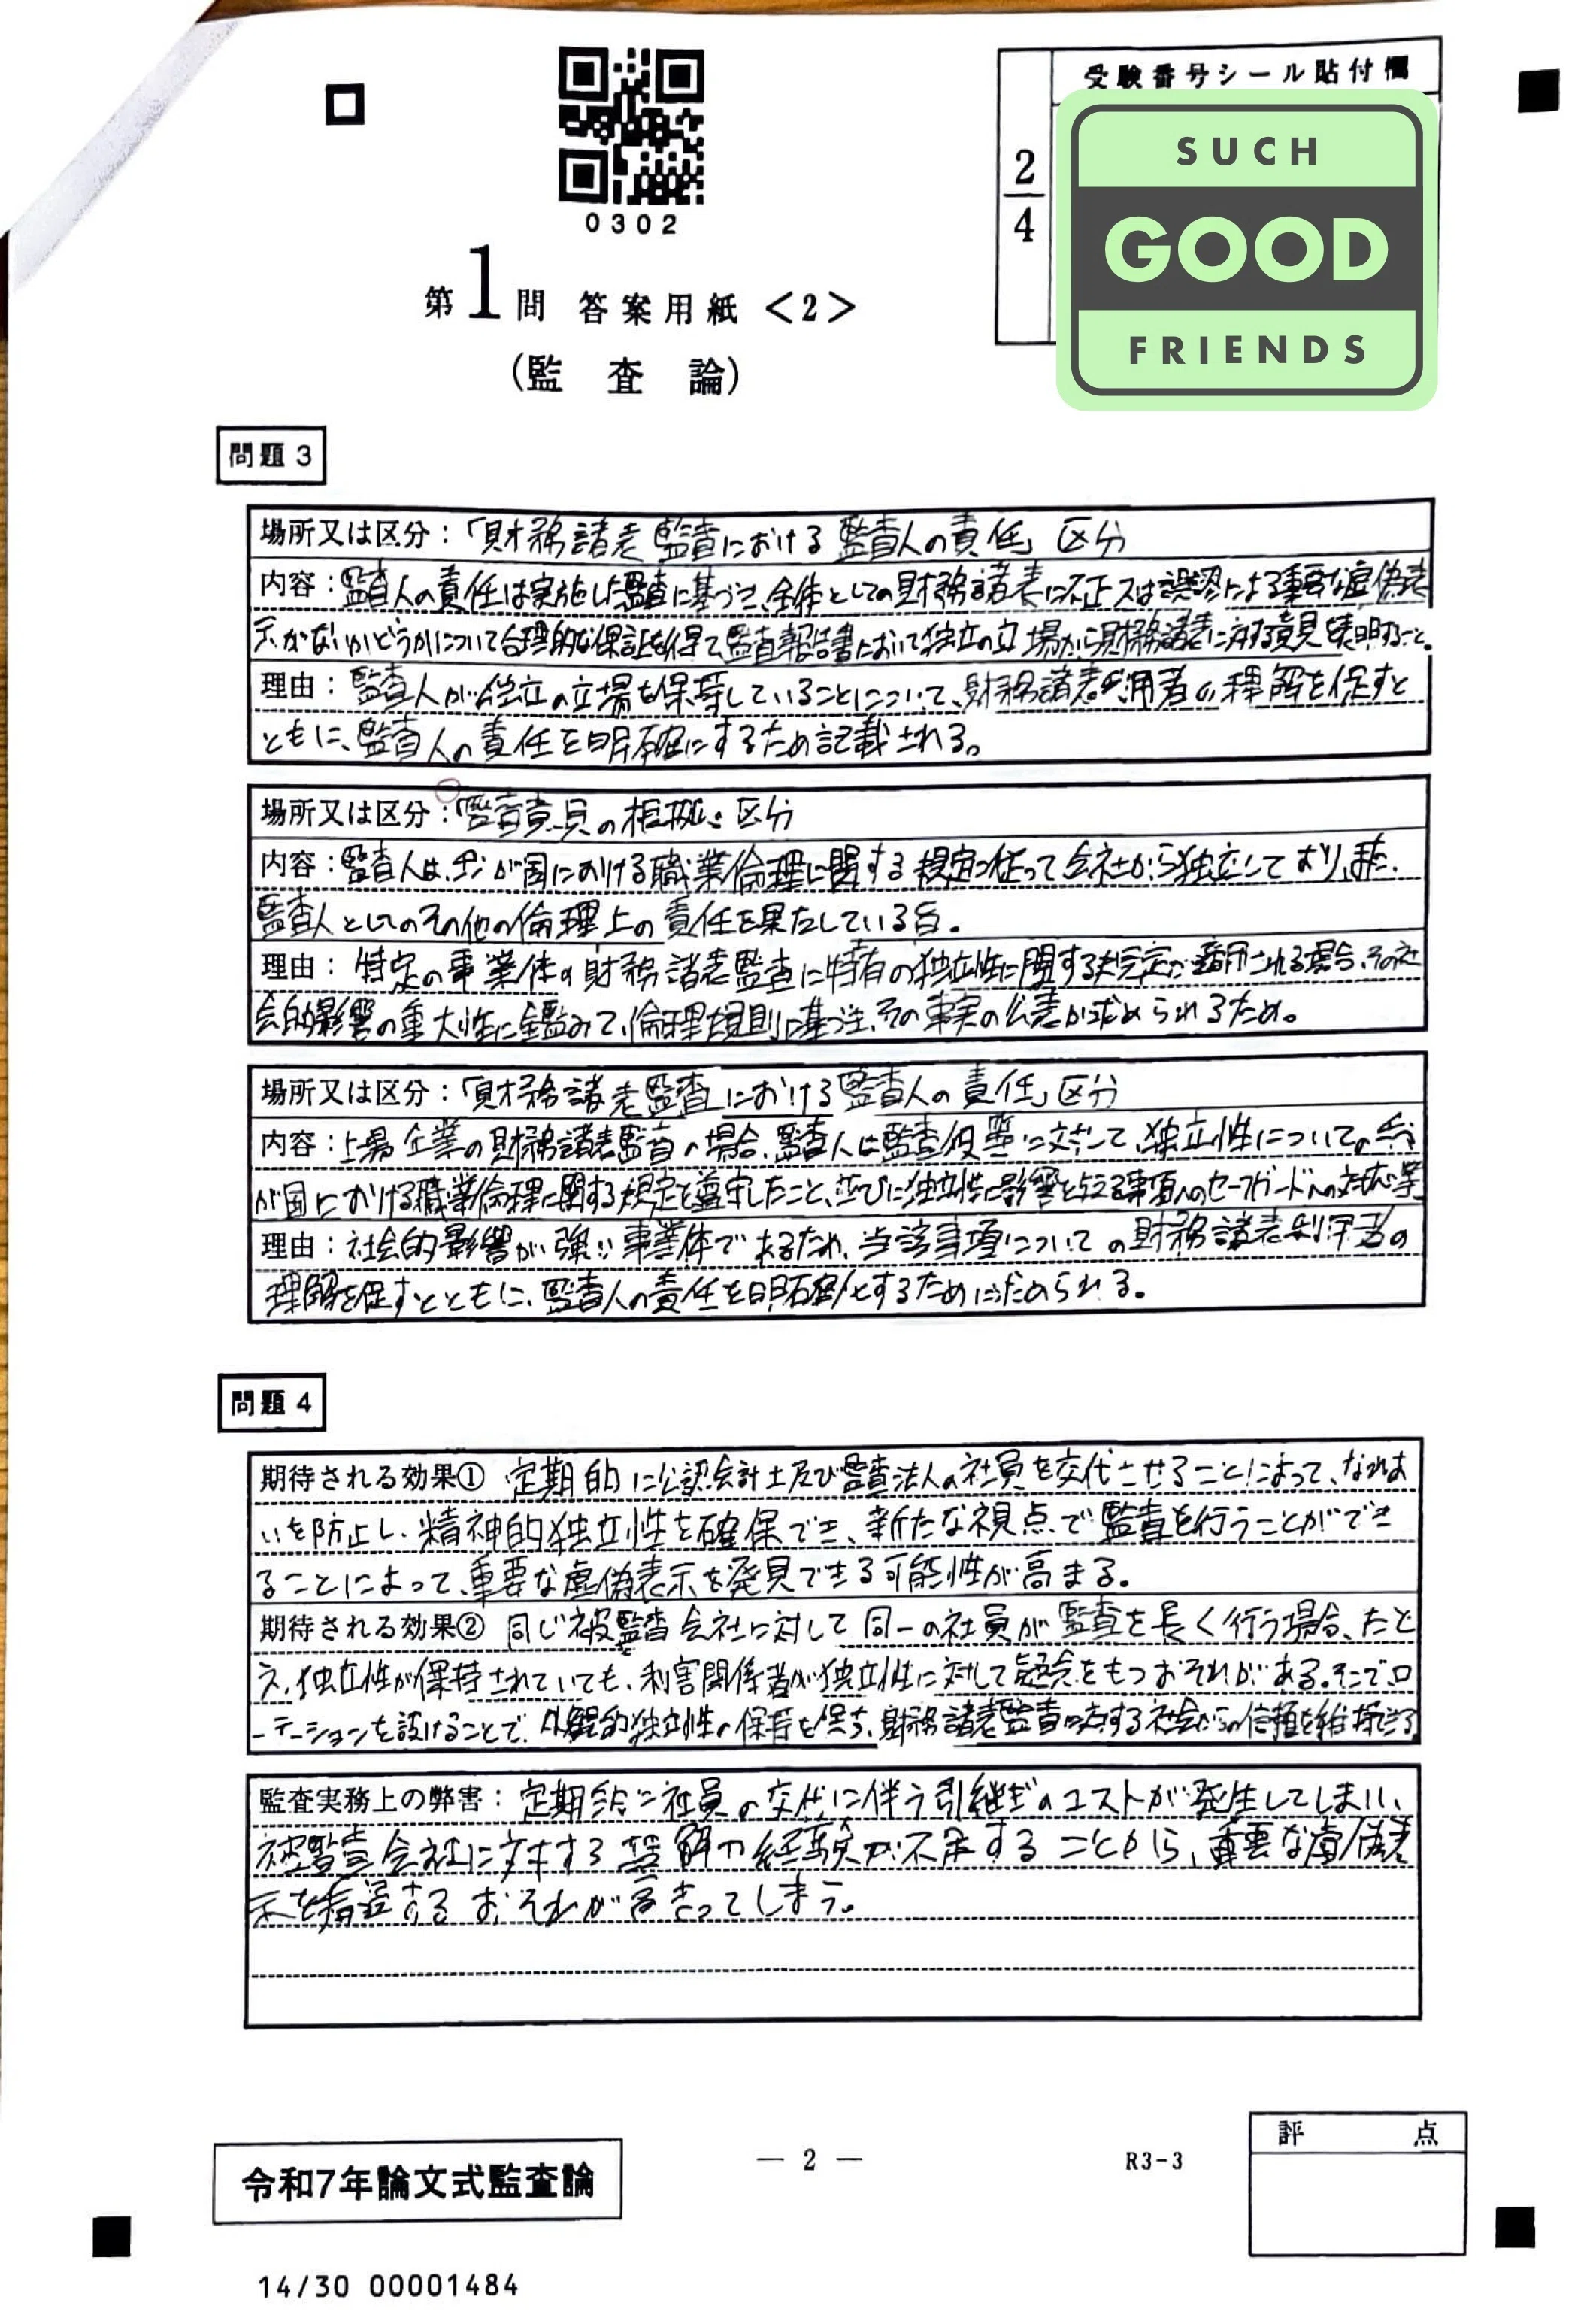 受験番号シール貼付欄
2
4
SUCH
GOOD
FRIENDS
0302
第1問 答案用紙<2>
(監査論)
問題3
場所又は区分:「財務諸表監査における監査人の責任」区分
内容:監査人の責任は実施した監査に基づき、全体としての財務諸表に不正又は誤謬による重要な虚偽表
示がないかどうかについて合理的な保証を得て、監査報告書において独立の立場から財務諸表に対する意見を表明すること。
理由:監査人が独立の立場を保持していることについて、財務諸表利用者の理解を促すと
ともに、監査人の責任を明確にするため記載される。
場所又は区分:「監査意見の根拠」区分
内容:監査人は、我が国における職業倫理に関する規定に従って会社から独立しており、また、
監査人としてのその他の倫理上の責任を果たしている旨。
理由:特定の事業体の財務諸表監査に特有の独立性に関する規定が適用される場合、その社
会的影響の重大性に鑑みて、倫理規則に基づき、その事実の公表が求められるため。
場所又は区分:「財務諸表監査における監査人の責任」区分
内容:上場企業の財務諸表監査の場合、監査人は監査役等に対して、独立性についての我
が国における職業倫理に関する規定を遵守したこと、並びに独立性に影響を与える事項へのセーフガードへの対応等
理由:社会的影響が強い事業体であるため、当該事項についての財務諸表利用者の
理解を促すとともに、監査人の責任を明確化するために求められる。
問題4
期待される効果① 定期的に公認会計士及び監査法人の社員を交代させることによって、なれあ
いを防止し、精神的独立性を確保でき、新たな視点で監査を行うことができ
ることによって、重要な虚偽表示を発見できる可能性が高まる。
期待される効果② 同じ被監査会社に対して同一の社員が監査を長く行う場合、たと
え、独立性が保持されていても、利害関係者が独立性に対して疑念をもつおそれがある。そこで、ロ
ーテーションを設けることで、外観的独立性の保持を保ち、財務諸表監査に対する社会からの信頼を維持できる
監査実務上の弊害:定期的に社員の交代に伴う引継ぎのコストが発生してしまい、
被監査会社に対する理解や経験が不足することから、重要な虚偽表
示を看過するおそれが高まってしまう。
令和7年論文式監査論
— 2 —
R3-3
評 点
14/30 00001484